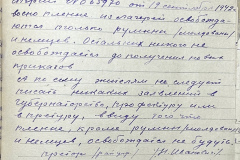 № 03970 от 12 сентября 194
военнопленные из лагерей освобожда-
ются только румыны (молдаване)
и немцы. Остальные никого не
освобождается до получения новых
приказов
А по сему жителям не следует
писать никаких заявлений в
губернаторство, прокуратуру или
в претуру, ввиду того что
пленные, кроме румын (молдаван)
и немцев, освобождаться не будут.
претор